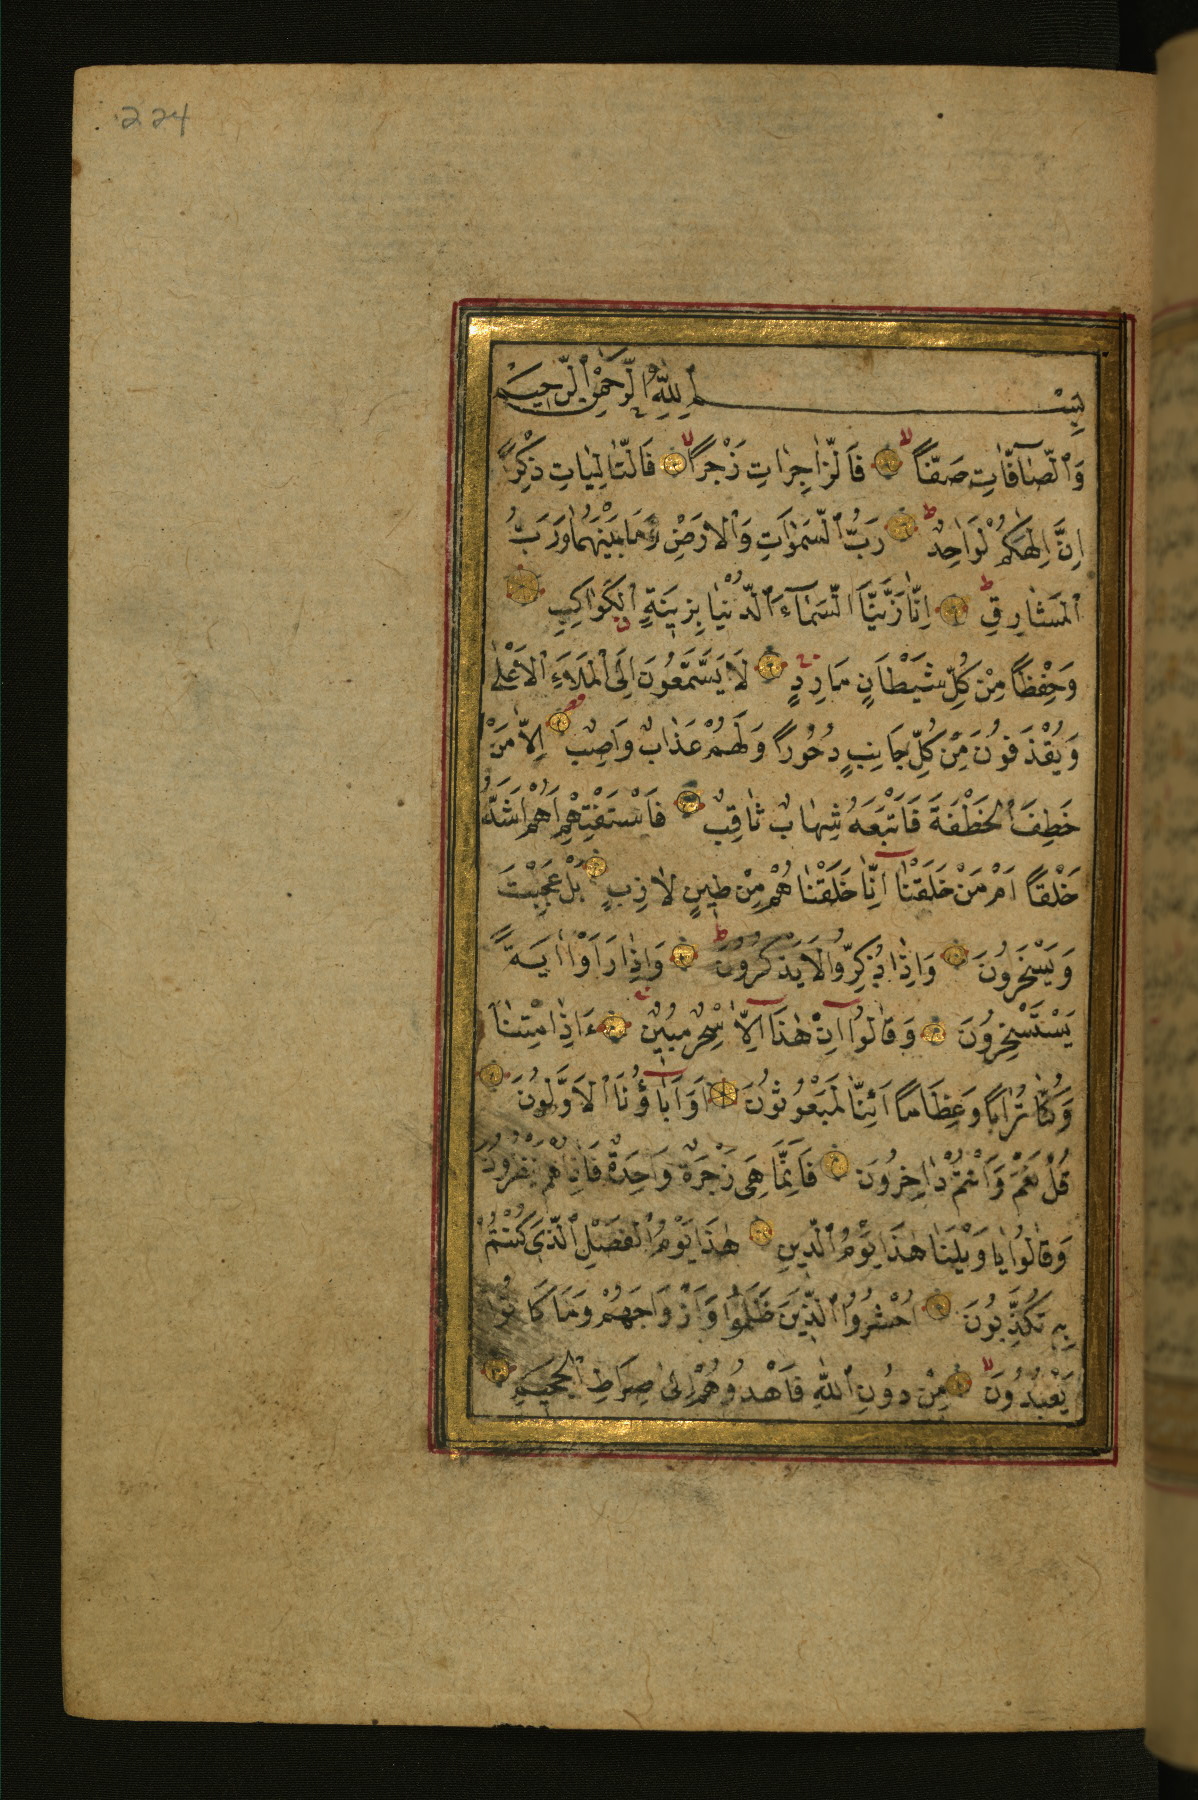 224
بِسْمِ ٱللّٰهِ ٱلرَّحْمٰنِ ٱلرَّحِيمِ
وَٱلصَّآفَّاتِ صَفًّا فَٱلزَّاجِرَاتِ زَجْرًا فَٱلتَّالِيَاتِ ذِكْرًا
اِنَّ اِلٰهَكُمْ لَوَاحِدٌ رَبُّ ٱلسَّمٰوَاتِ وَٱلْاَرْضِ وَمَا بَيْنَهُمَا وَرَبُّ
ٱلْمَشَارِقِ اِنَّا زَيَّنَّا ٱلسَّمَآءَ ٱلدُّنْيَا بِزِينَةٍ ٱلْكَوَاكِبِ
وَحِفْظًا مِنْ كُلِّ شَيْطَانٍ مَارِدٍ لَا يَسَّمَّعُونَ اِلَى ٱلْمَلَاءِ ٱلْاَعْلٰى
وَيُقْذَفُونَ مِنْ كُلِّ جَانِبٍ دُحُورًا وَلَهُمْ عَذَابٌ وَاصِبٌ اِلَّا مَنْ
خَطِفَ ٱلْخَطْفَةَ فَاَتْبَعَهُ شِهَابٌ ثَاقِبٌ فَاسْتَفْتِهِمْ اَهُمْ اَشَدُّ
خَلْقًا اَمْ مَنْ خَلَقْنَا اِنَّا خَلَقْنَاهُمْ مِنْ طِينٍ لَازِبٍ بَلْ عَجِبْتَ
وَيَسْخَرُونَ وَاِذَا ذُكِّرُوا لَا يَذْكُرُونَ وَاِذَا رَاَوْا اٰيَةً
يَسْتَسْخِرُونَ وَقَالُوا اِنْ هٰذَا اِلَّا سِحْرٌ مُبِينٌ ءَاِذَا مِتْنَا
وَكُنَّا تُرَابًا وَعِظَامًا اَئِنَّا لَمَبْعُوثُونَ اَوَاٰبَاؤُنَا ٱلْاَوَّلُونَ
قُلْ نَعَمْ وَاَنْتُمْ دَاخِرُونَ فَاِنَّمَا هِىَ زَجْرَةٌ وَاحِدَةٌ فَاِذَا هُمْ يَنْظُرُونَ
وَقَالُوا يَا وَيْلَنَا هٰذَا يَوْمُ ٱلدِّينِ هٰذَا يَوْمُ ٱلْفَصْلِ ٱلَّذِى كُنْتُمْ
بِهِ تُكَذِّبُونَ اُحْشُرُوا ٱلَّذِينَ ظَلَمُوا وَاَزْوَاجَهُمْ وَمَا كَانُوا
يَعْبُدُونَ مِنْ دُونِ ٱللّٰهِ فَاهْدُوهُمْ اِلٰى صِرَاطِ ٱلْجَحِيمِ